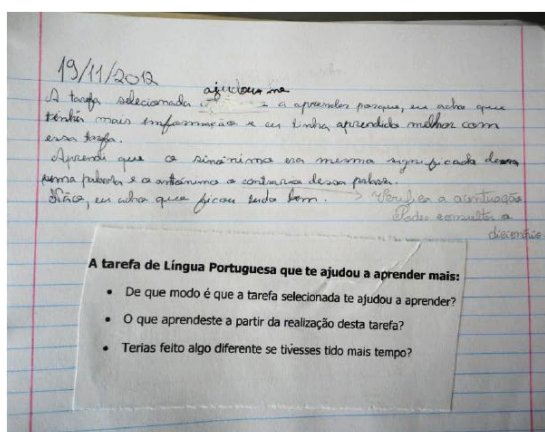 19/11/2012
ajudou-me
A tarefa selecionada a aprender porque, eu acho que
tinha mais informação e eu tinha aprendido melhor com
essa tarefa.
Aprendi que o sinónimo era mesmo significado dessa
uma palavra e o antónimo o contrario dessa palavra.
Não, eu acho que ficou tudo bem. Verifica a acentuação
Podes consultar o
dicionário
A tarefa de Língua Portuguesa que te ajudou a aprender mais:
• De que modo é que a tarefa selecionada te ajudou a aprender?
• O que aprendeste a partir da realização desta tarefa?
• Terias feito algo diferente se tivesses tido mais tempo?